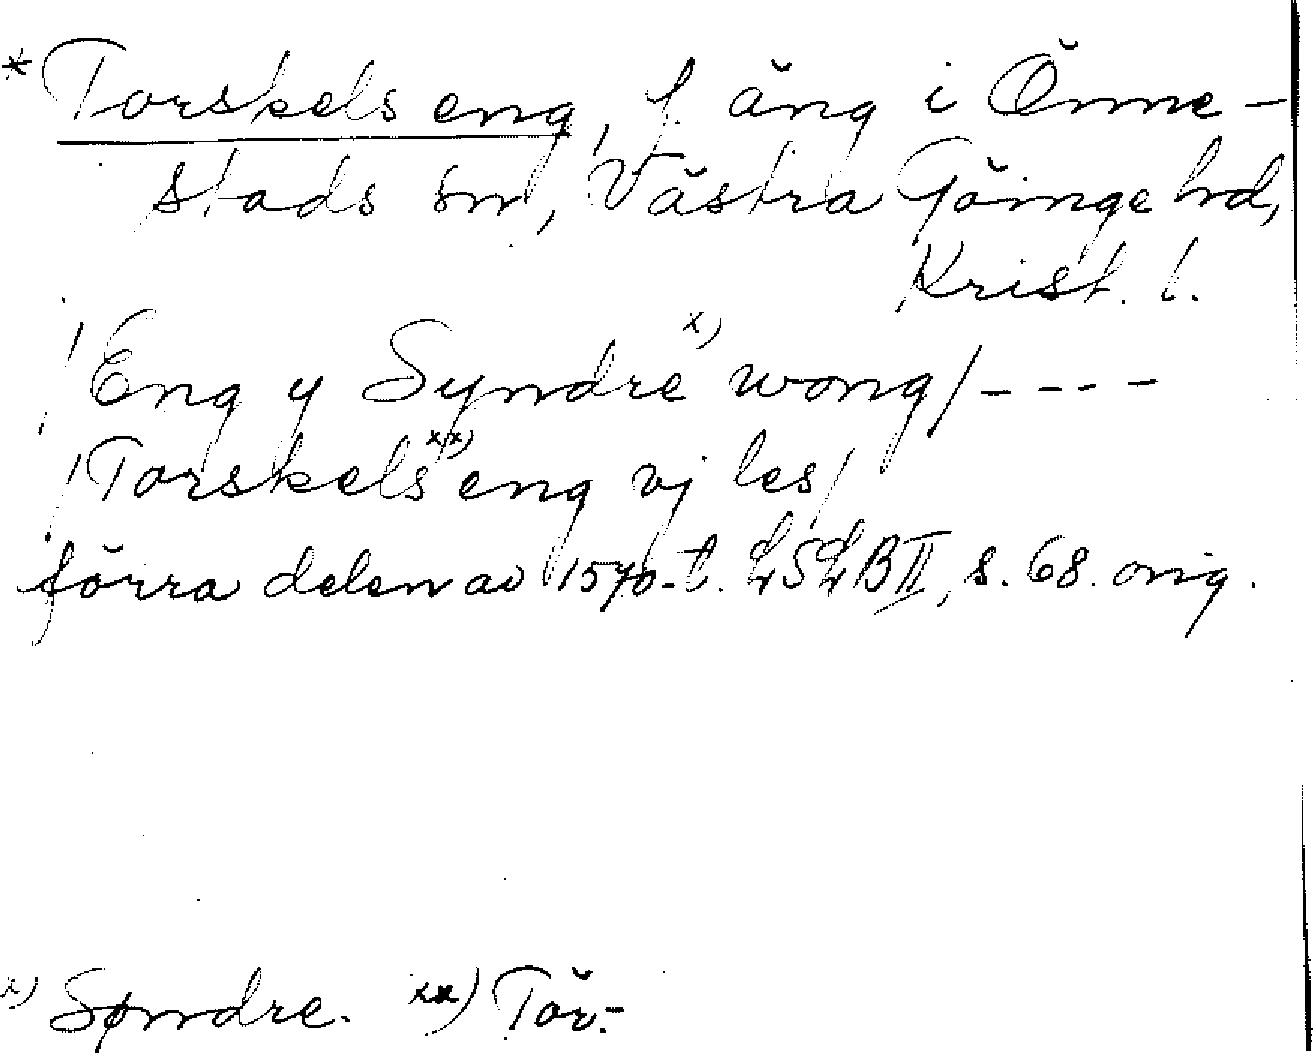 * Torskels eng, f. äng i Önne-
stads sn, Västra Göinge hd,
Krist. l.
/Eng y Syndre x) wong/ - - - -
/Torskels xx) eng vj les/
förra delen av 1570-t. LSLB II, s. 68. orig.
x) Søndre. xx) Tör-